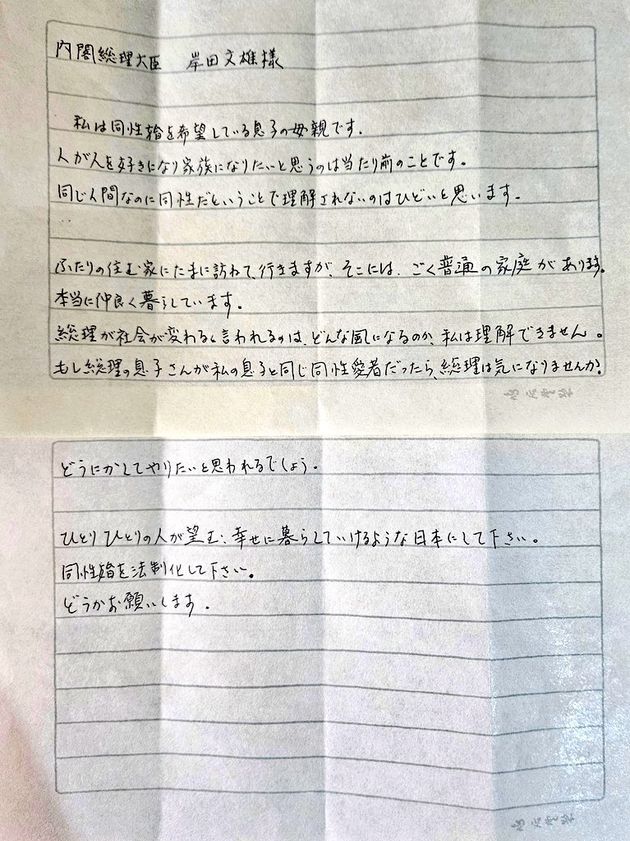 内閣総理大臣　岸田文雄様
私は同性婚を希望している息子の母親です。
人が人を好きになり家族になりたいと思うのは当たり前のことです。
同じ人間なのに同性だということで理解されないのはひどいと思います。
ふたりの住む家にたまに訪れて行きますが、そこには、ごく普通の家庭があります。
本当に仲良く暮らしています。
総理が社会が変わると言われるのは、どんな風になるのか、私は理解できません。
もし総理の息子さんが私の息子と同じ同性愛者だったら、総理は気になりませんか?
どうにかしてやりたいと思われるでしょう。
ひとりひとりの人が望む、幸せに暮らしていけるような日本にして下さい。
同性婚を法制化して下さい。
どうかお願いします。